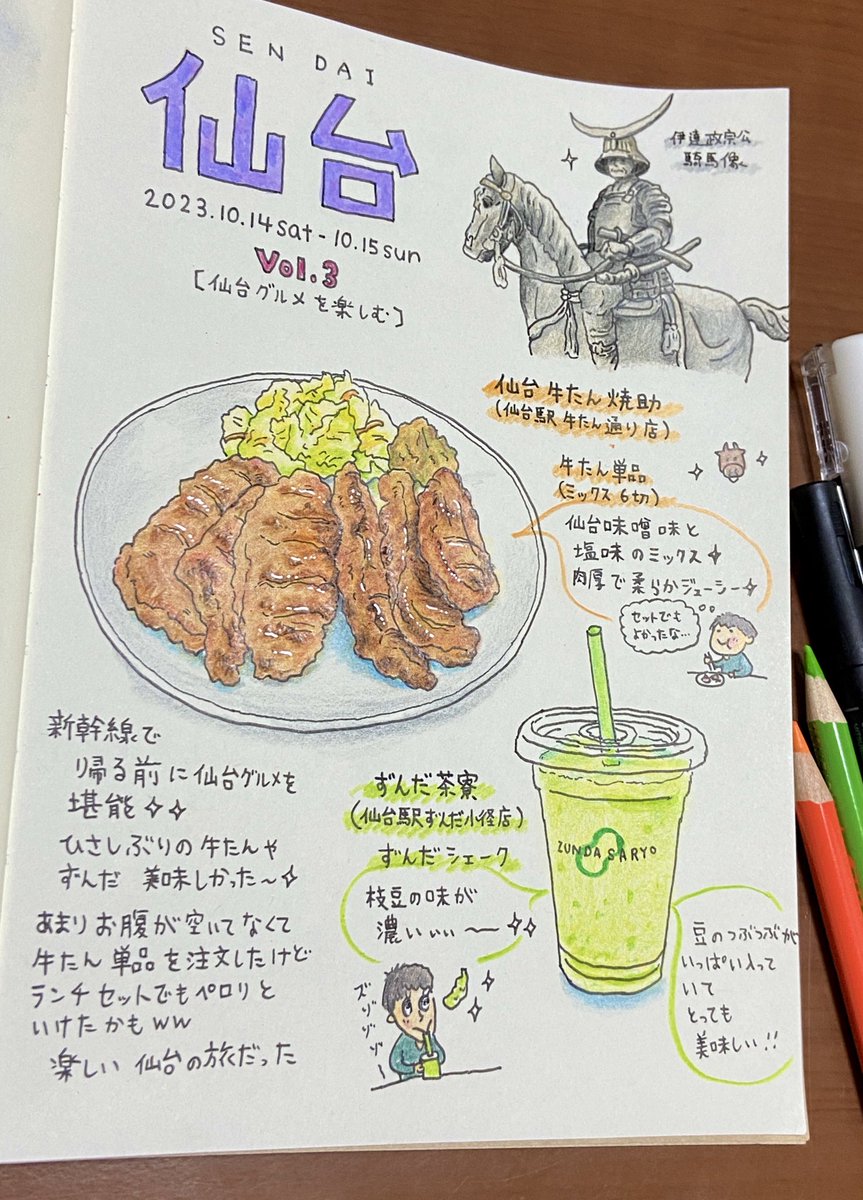 SEN DAI
仙台
2023.10.14sat-10.15sun
Vol.3
[仙台グルメを楽しむ]
伊達政宗公
騎馬像
仙台 牛たん 焼助
(仙台駅 牛たん通り店)
牛たん単品
(ミックス 6切)
仙台味噌味と
塩味のミックス
肉厚で柔らかジューシー
セットでも
よかったな…
新幹線で
帰る前に仙台グルメを
堪能
ひさしぶりの牛たんや
ずんだ 美味しかった〜
あまりお腹が空いてなくて
牛たん単品を注文したけど
ランチセットでもペロリと
いけたかもww
楽しい 仙台の旅だった
ずんだ茶寮
(仙台駅ずんだ小径店)
ずんだシェーク
枝豆の味が
濃いぃぃ〜
ズゾゾゾ
ZUNDA SARYO
豆のつぶつぶが
いっぱい入って
いて
とっても
美味しい!!